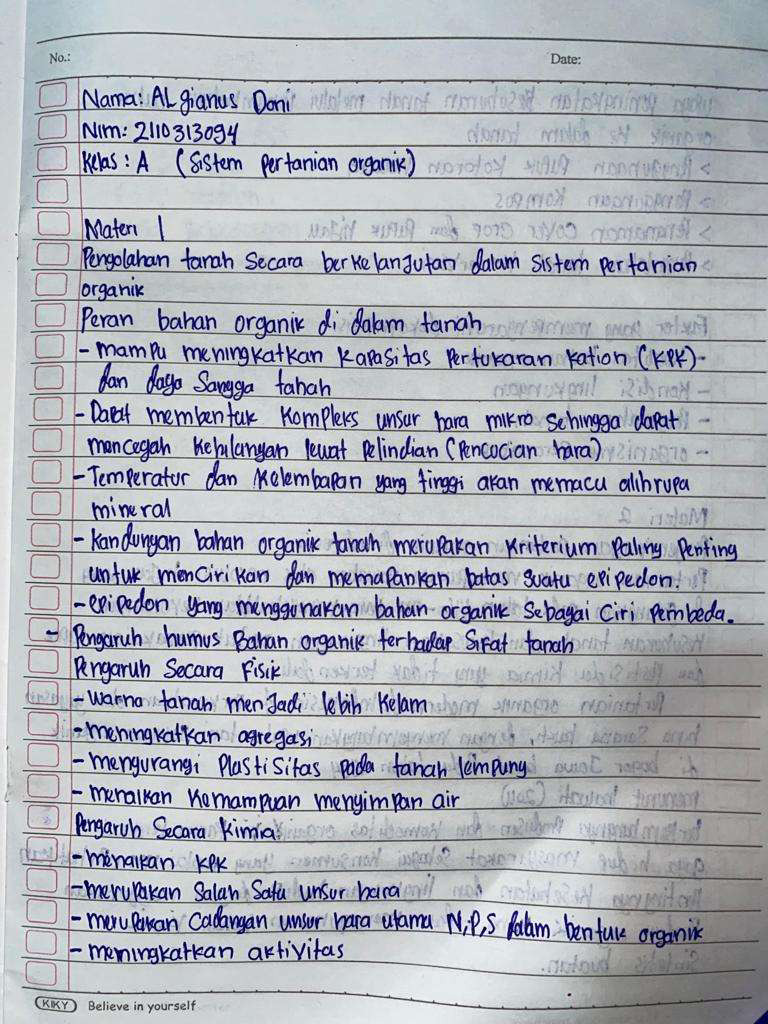 No.: Date:
Nama: AL gianus Doni
Nim: 2110313094
Kelas : A (Sistem pertanian organik)
Materi 1
Pengolahan tanah Secara berkelanjutan dalam sistem pertanian
organik
Peran bahan organik di dalam tanah
- mampu meningkatkan Kapasitas Pertukaran Kation (KPK)-
dan daya Sangga tanah
- Dapat membentuk Kompleks unsur hara mikro Sehingga dapat
mencegah Kehilangan lewat Pelindian (Pencucian hara)
- Temperatur dan Kelembapan yang tinggi akan memacu alihrupa
mineral
- kandungan bahan organik tanah merupakan Kriterium Paling Penting
untuk mencirikan dan memapankan batas Suatu epipedon.
- epipedon yang menggunakan bahan organik Sebagai Ciri Pembeda.
- Pengaruh humus Bahan organik terhadap Sifat tanah
Pengaruh Secara Fisik
- warna tanah menjadi lebih Kelam
- meningkatkan agregasi
- mengurangi PlastiSitas pada tanah lempung
- menaikan Kemampuan menyimpan air
Pengaruh Secara Kimia
- menaikan KPK
- merupakan Salah Satu unsur hara
- merupakan Cadangan unsur hara utama N,P,S dalam bentuk organik
- meningkatkan aktivitas
KIKY Believe in yourself